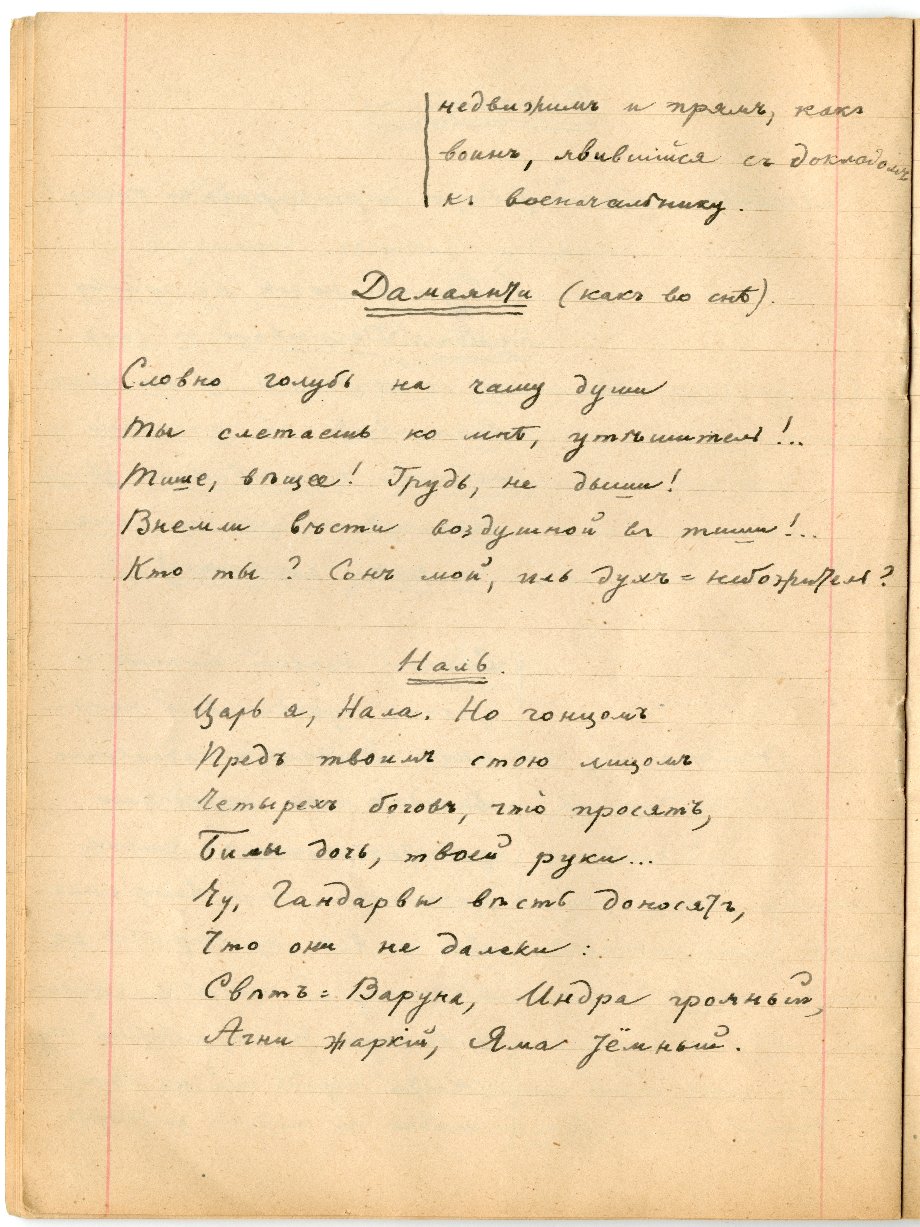 недвижимъ и прямъ, какъ
воинъ, явившійся съ докладомъ
къ военачальнику.
Дамаянти (какъ во снѣ).
Словно голубь на чашу души
Ты слетаешь ко мнѣ, утѣшитель!..
Тише, вѣщее! Грудь, не дыши!
Внемли вѣсти воздушной въ тиши!..
Кто ты? Сонъ мой, иль духъ=небожитель?
Наль.
Царь я, Нала. Но гонцомъ
Предъ твоимъ стою лицомъ
Четырехъ боговъ, что просятъ,
Бимы дочь, твоей руки...
Чу, Гандарвы вѣсть доносятъ,
Что они не далеки:
Свѣтъ=Варуна, Индра громный,
Агни жаркій, Яма тёмный.